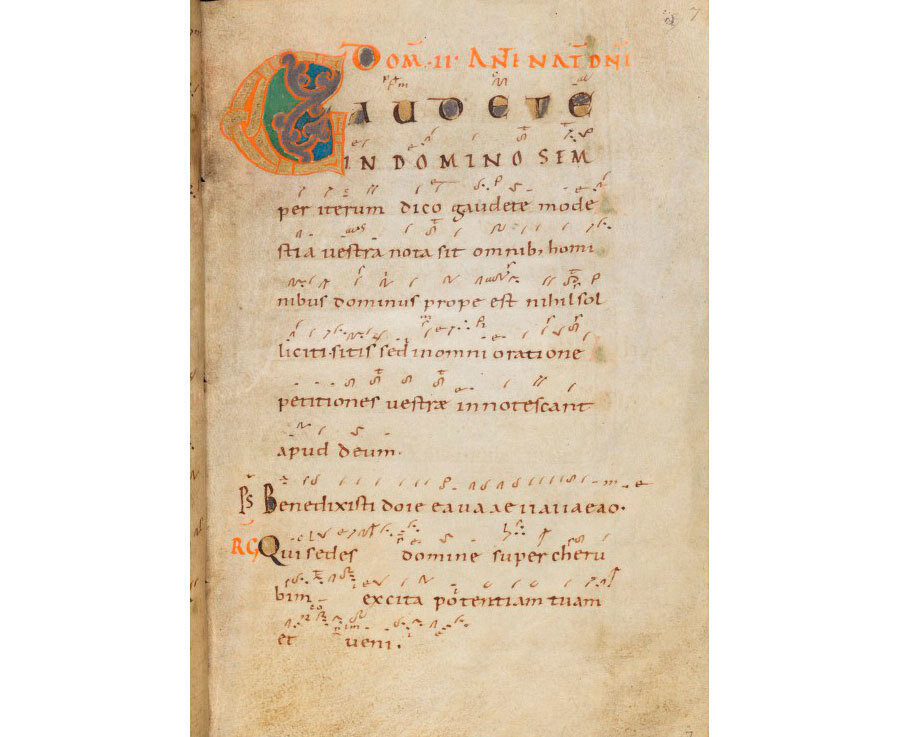 DOM̄·II· ANT̄ NAT̄ DN̄I
GAUDETE
IN DOMINO SEM
per iterum dico gaudete mode
stia uestra nota sit omnib; homi
nibus dominus prope est nihil sol
liciti sitis sed in omni oratione
petitiones uestræ innotescant
apud deum·
Ps̄ Benedixisti doie eauaaeuauaeao·
RG Qui sedes domine super cheru
bim excita potentiam tuam
et ueni·